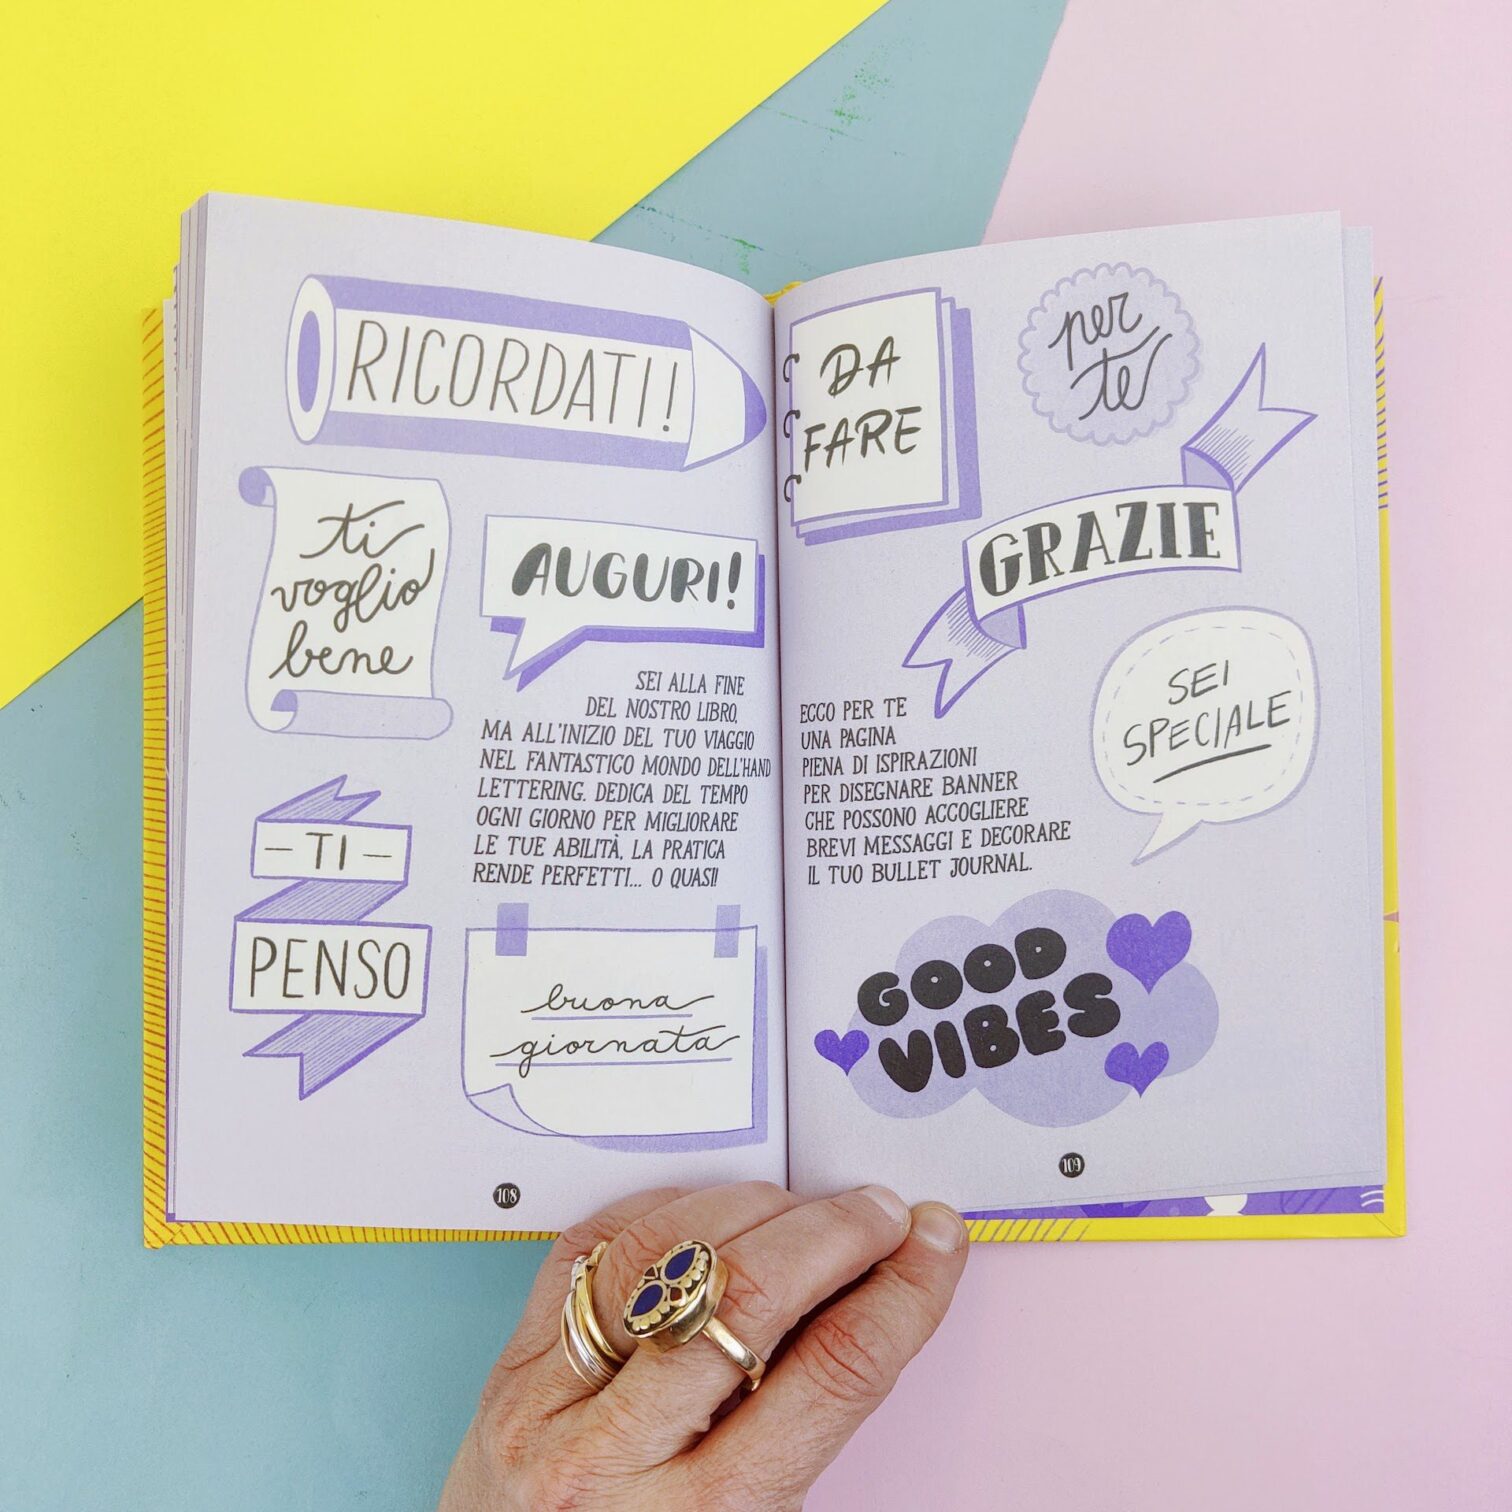 RICORDATI!
ti
voglio
bene
AUGURI!
SEI ALLA FINE
DEL NOSTRO LIBRO,
MA ALL'INIZIO DEL TUO VIAGGIO
NEL FANTASTICO MONDO DELL'HAND
LETTERING. DEDICA DEL TEMPO
OGNI GIORNO PER MIGLIORARE
LE TUE ABILITÀ, LA PRATICA
RENDE PERFETTI... O QUASI!
– TI –
PENSO
buona
giornata
108
DA
FARE
per
te
GRAZIE
SEI
SPECIALE
ECCO PER TE
UNA PAGINA
PIENA DI ISPIRAZIONI
PER DISEGNARE BANNER
CHE POSSONO ACCOGLIERE
BREVI MESSAGGI E DECORARE
IL TUO BULLET JOURNAL.
GOOD
VIBES
109